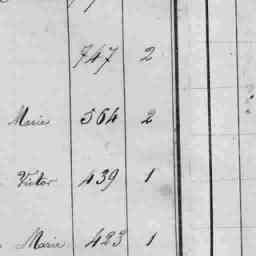 747 2
Marie 564 2
Victor 439 1
Marie 423 1